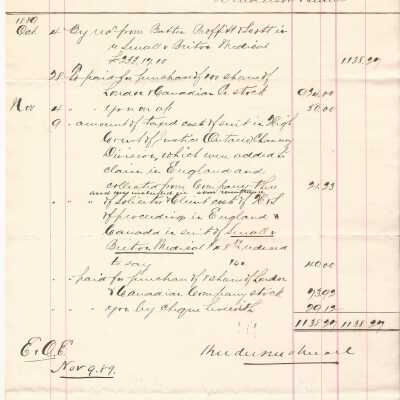 1889
Oct 4 By rec'd from Batten Proffitt & Scott in
re Small & Briton Medical
£233.19.10 1138.27
28 To paid for purchase of 100 shares of
London & Canadian Co stock 924.00
Nov 4 " you on a/c 50.00
9 " amount of taxed cost of suit in High
Court of Justice Ontario Chancery
Division, which were added to
claim in England and
collected from Company there
and are included in above remittance 21.23
" " of Solicitor & Client cost of H & S
of proceedings in England &
Canada in suit of Small v
Briton Medical reduced
to say 100
- paid for purchase of shares of London
& Canadian Company stock
" you by cheque herewith 29.12
1138.27 1138.27
E.O.E.
Nov 9. 89.